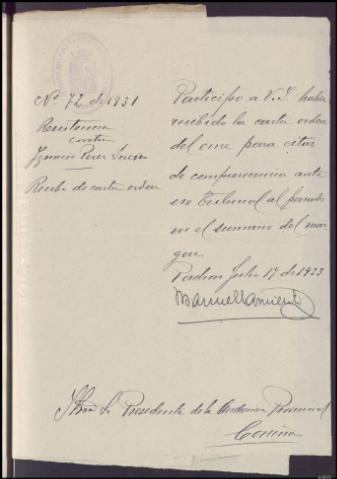 Nº 72 de 1931
Resistencia
contra
Ignacio Perez
Recibo de carta orden
Participo a V.S. haber
recibido la carta orden
del once para citar
de comparecencia ante
ese Tribunal al penado
en el sumario del mar-
gen
Padron Julio 17 de 1933
Ilmo Sr Presidente de la Audiencia Provincial
Coruña